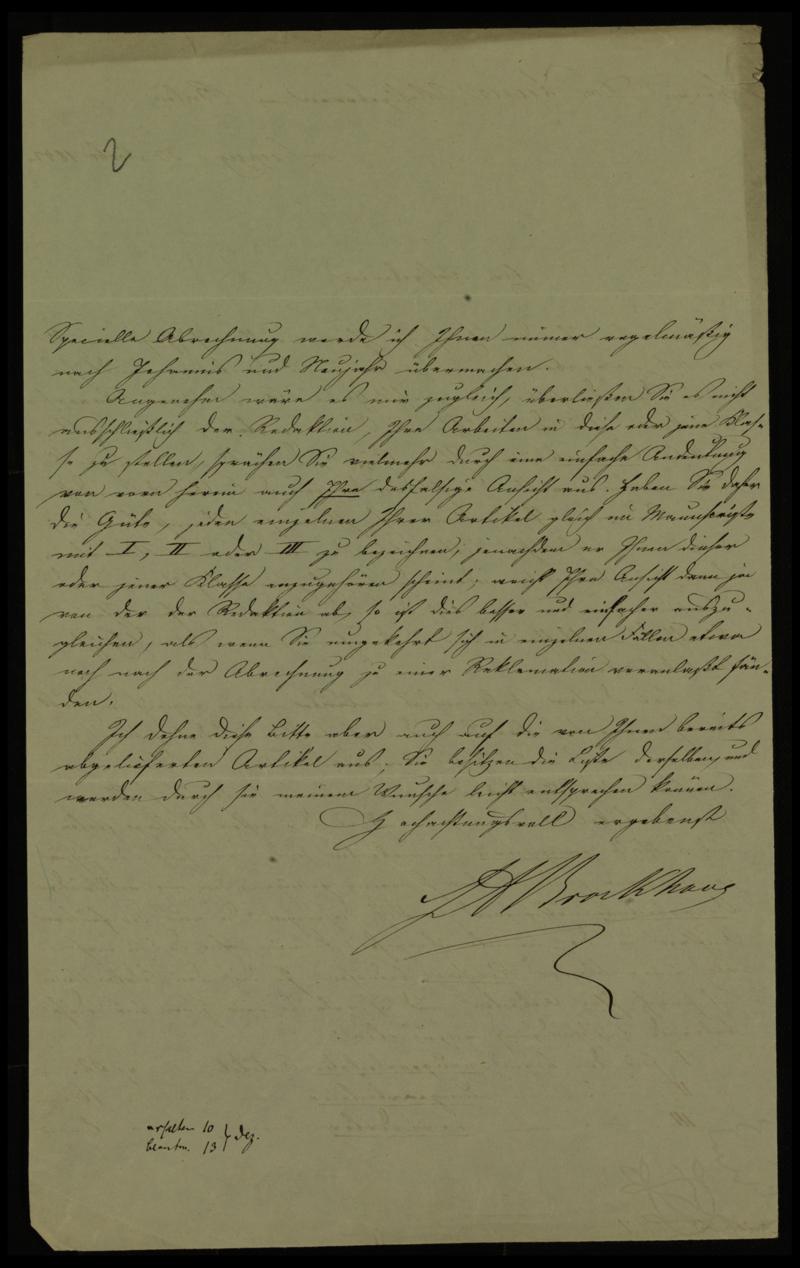 2
Specielle Abrechnung werde ich Ihnen immer regelmäßig
nach Johannis und Neujahr übermachen.
Angenehm wäre es mir zugleich, überließen Sie es nicht
ausschließlich der Redaktion, Ihre Arbeiten in diese oder jene Klas-
se zu stellen, sprächen Sie vielmehr durch eine einfache Andeutung
von vorn herein auch Ihre desfalsige Ansicht aus. Haben Sie daher
die Güte, jeden einzelnen Ihrer Artikel gleich im Manuscripte
mit I, II oder III zu bezeichnen, jenachdem er Ihnen dieser
oder jener Klasse anzugehören scheint; weicht Ihre Ansicht dann ja
von der der Redaktion ab, so ist dies besser und einfacher auszu-
gleichen, als wenn Sie umgekehrt sich in einzelnen Fällen etwa
noch nach der Abrechnung zu einer Reklamation veranlaßt fän-
den.
Ich dehne diese Bitte aber auch auf die von Ihnen bereits
abgelieferten Artikel aus; Sie besitzen die Liste derselben, und
werden durch sie meinem Wunsche leicht entsprechen können.
Hochachtungsvoll ergebenst
F A Brockhaus
erhalten 10 } Dez.
beantw. 13